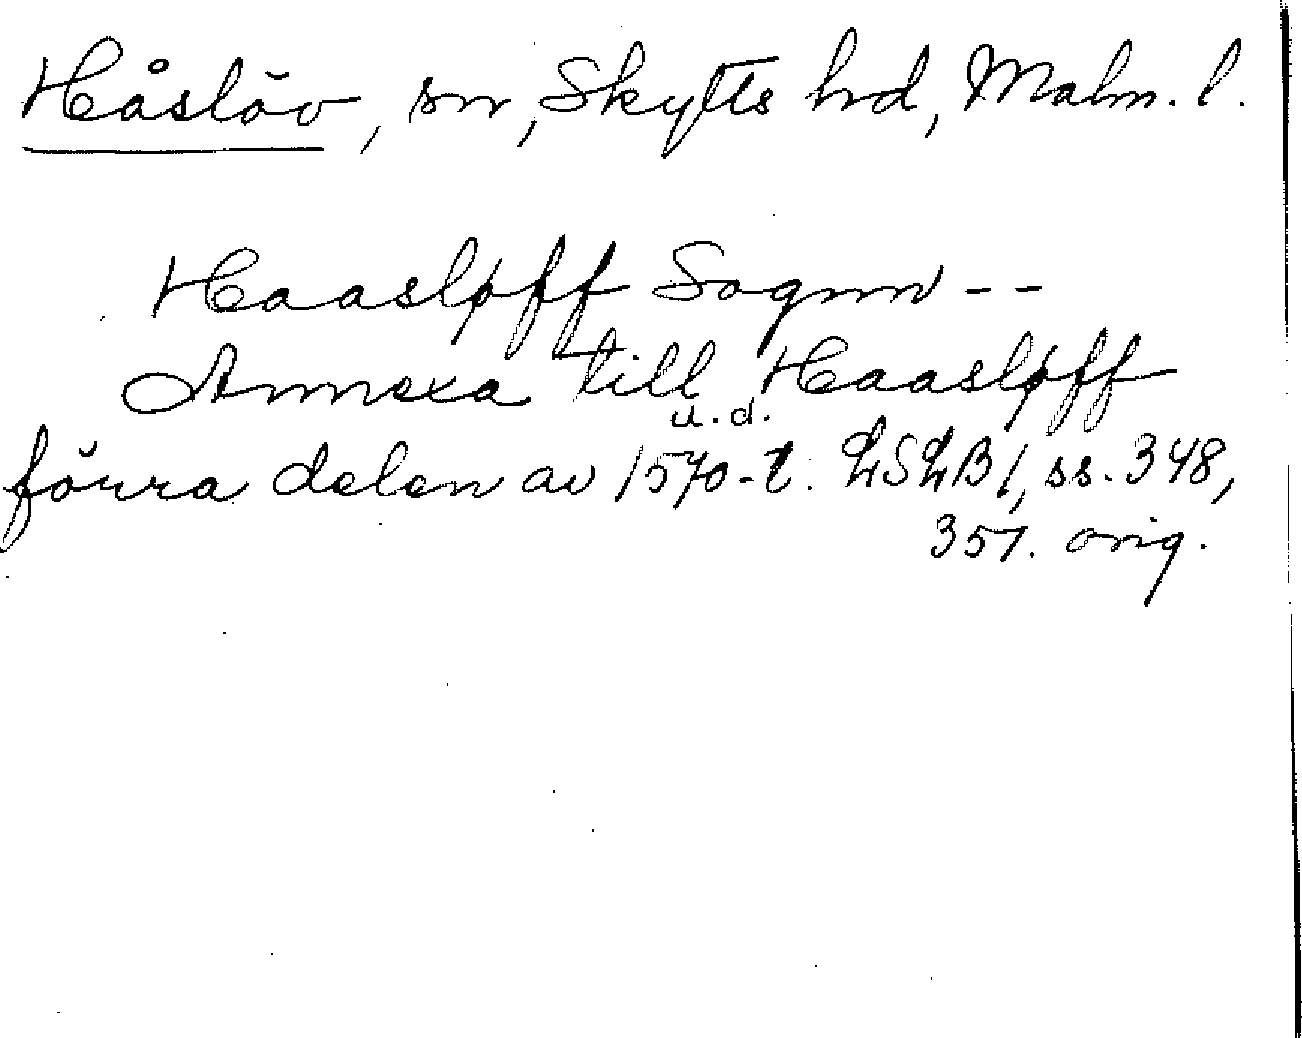 Håslöv, sn, Skytts hd, Malm. l.
Haasløff Sognn --
Annexa till Haasløff
u. d.
förra delen av 1570-t. LSLB 1, ss. 348,
357. orig.